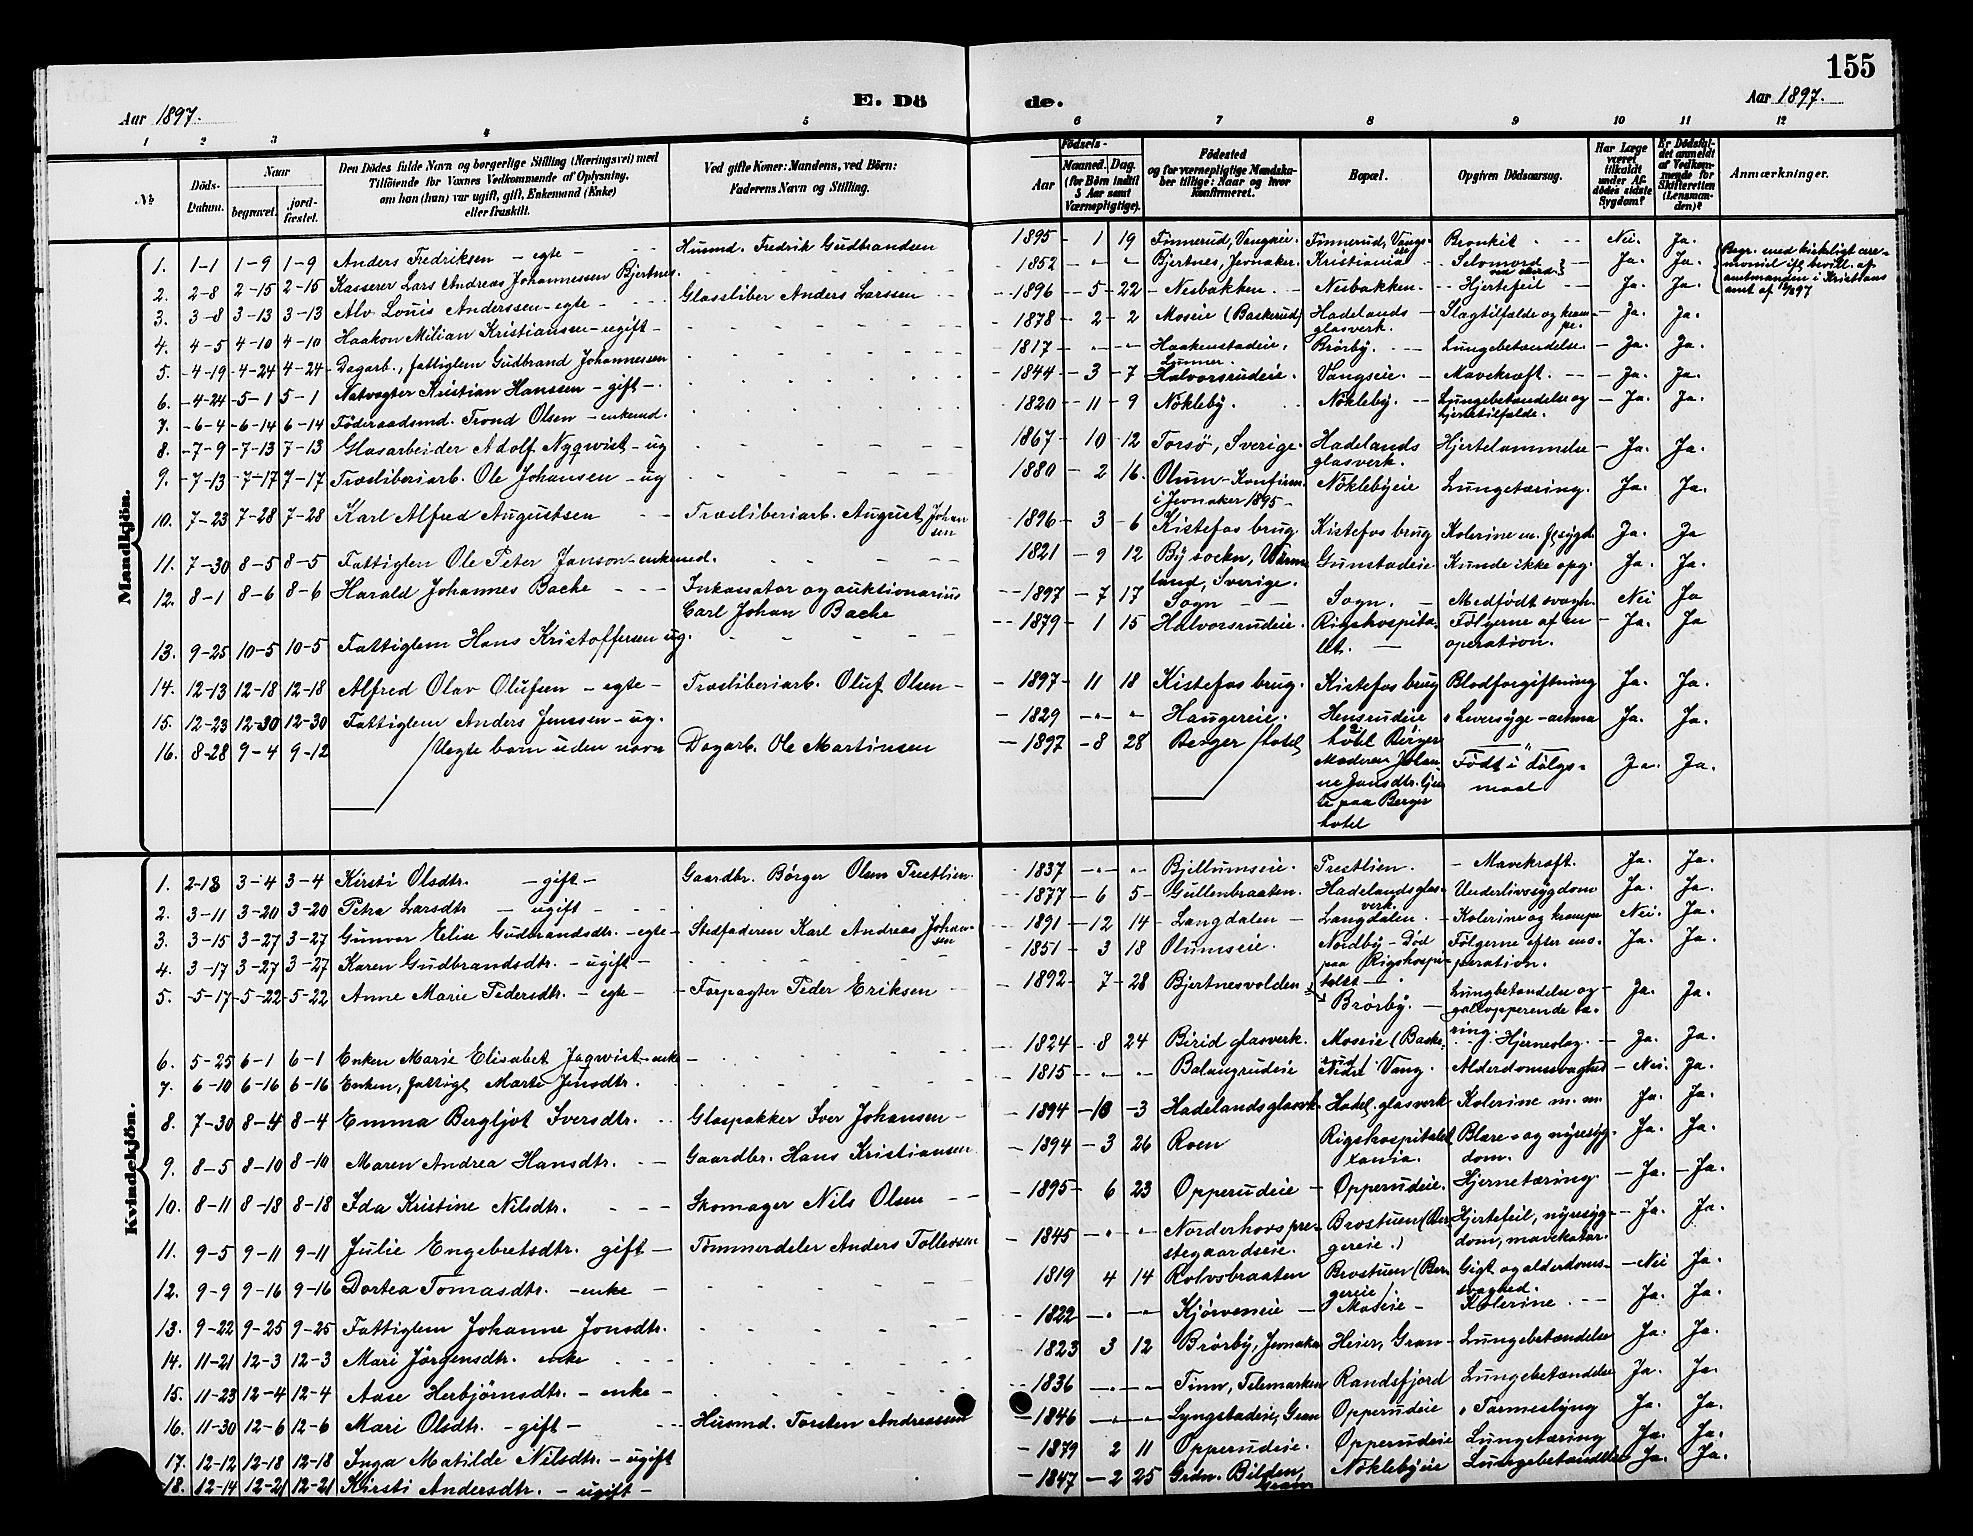 155
Aar 1897.
E. Dö
de.
Aar 1897.
1 2 3 4 5 6 7 8 9 10 11 12
№
Döds-Datum.
Naar
begravet.
jord-fæstet.
Den Dödes fulde Navn og borgerlige Stilling (Næringsvei) med
Tilföiende for Voxnes Vedkommende af Oplysning,
om han (hun) var ugift, gift, Enkemand (Enke)
eller fraskilt.
Ved gifte Koner: Mandens, ved Börn:
Faderens Navn og Stilling.
Födsels-
Aar
Maaned. Dag.
(for Börn indtil
5 Aar samt
Værnepligtige).
Födested
og for værnepligtige Mandska-
ber tillige: Naar og hvor
Konfirmeret.
Bopæl.
Opgiven Dödsaarsag.
Har Læge
været
tilkaldt
under Af-
dödes sidste
Sygdom?
Er Dödsfal-
det anmeldt
af Vedkom-
mende for
Skifteretten
(Lensman-
den)?
Anmærkninger.
Mandkjön.
1. 1-1 1-9 1-9 Anders Fredriksen - egte - Husmd. Fredrik Gudbrandsen 1895 - 1 19 Finnerud, Vangseie. Finnerud, Vangseie Bronkit Nei. Ja.
2. 2-8 2-15 2-15 Kasserer Lars Andreas Johannessen Bjertnes. 1852 - " - " Bjertnes, Jevnaker. Kristiania Selvmord Ja. Ja. Begr. med kirkeligt cere-
moniel ifl. bevill. af
amtmanden i Kristians
amt af
3. 3-8 3-13 3-13 Alv Louis Anderssen - egte - Glassliber Anders Larssen 1896 - 5 - 22 Nesbakken. Nesbakken. Hjertefeil Ja. Ja.
4. 4-5 4-10 4-10 Haakon Milian Kristiansen - ugift - 1878 - 2 - 2 Moseie (Bakerud) Hadelands glasverk. Slagtilfælde og krampe. Ja. Ja.
5. 4-19 4-24 4-24 Dagarb., fattiglem Gudbrand Johannessen 1817 - " - " Haakenstadeie, Lunner. Brörby. Lungebetændelse. Ja. Ja.
6. 4-24 5-1 5-1 Natvogter Kristian Hanssen - gift - 1844 - 3 - 7 Halvorsrudeie. Vangseie. Mavekræft. Ja. Ja.
7. 6-4 6-14 6-14 Föderaadsmd. Trond Olsen - enkemd. 1820 - 11 - 9 Nökleby. Nökleby. Lungebetændelse og hjertetilfælde. Ja. Ja.
8. 7-9 7-13 7-13 Glasarbeider Adolf Nyqwist - ug 1867 - 10 - 12 Torsö, Sverige. Hadelands glasverk. Hjertelammelse Ja. Ja.
9. 7-13 7-17 7-17 Træsliberiarb. Ole Johansen - ug 1880 - 2 16. Olum - Konfirm. i Jevnaker 1895 - Nöklebyeie Lungetæring. Ja. Ja.
10. 7-23 7-28 7-28 Karl Alfred Augustsen Træsliberiarb. August Johansen 1896 - 3 - 6 Kistefos brug Kistefos brug Kolerine Ja. Ja
11. 7-30 8-5 8-5 Fattiglem Ole Peter Janson - enkemd. 1821 - 9 12 By sockn, Wermland, Sverige. Gunstadeie Kunde ikke opg. Ja. Ja.
12. 8-1 8-6 8-6 Harald Johannes Bache Inkassator og auktionarius
Carl Johan Bache 1897 - 7 17 Sogn Sogn. Medfödt svagh. Nei Ja
13. 9-25 10-5 10-5 Fattiglem Hans Kristoffersen ug. 1879 - 1 15 Halvorsrudeie. Rigshospitalet. Fölgerne af en operation. Ja. Ja
14. 12-13 12-18 12-18 Alfred Olav Olufsen - egte - Træsliberiarb. Oluf Olsen - 1897 - 11 18 Kistefos brug. Kistefos brug Blodforgiftning Ja. Ja.
15. 12-23 12-30 12-30 Fattiglem Anders Jenssen - ug. 1829 - " - " Haugereie. Hensrudeie Leversyge - astma Ja. Ja.
16. 8-28 9-4 9-12 Uegte barn uden navn Dagarb. Ole Martinsen 1897 - 8 28 Berger hotel hotel Berger
Moderen Johanne Jonsdtr. tjeneste paa Berger
hotel Födt i dölgsmaal Ja. Ja.
Kvindekjön.
1. 2-18 3-4 3-4 Kirsti Olsdtr. - gift - Gaardbr. Börger Olsen Prestlien. 1837 - " - " Bjellumseie. Prestlien. Mavekræft. Ja. Ja.
2. 3-11 3-20 3-20 Petra Larsdtr - ugift - 1877 - 6 5 - Gullenbraaten. Hadelandsglasverk. Underlivssygdom Ja. Ja.
3. 3-15 3-27 3-27 Gunvor Elise Gudbrandsdtr. - egte - Stedfaderen Karl Andreas Johansen 1891 - 12 14 - Langdalen - Langdalen. Kolerine og krampe Nei. Ja.
4. 3-17 3-27 3-27 Karen Gudbrandsdtr. - ugift - 1851 - 3 18 Olumseie. Nordby - Död paa Rigshospitalet - Fölgerne efter en operation. Ja. Ja.
5. 5-17 5-22 5-22 Anne Marie Pedersdtr. - egte - Forpagter Peder Eriksen 1892 - 7 - 28 Bjertnesvolden Brörby. Lungbetændelse og galopperende tæring. Ja. Ja.
6. 5-25 6-1 6-1 Enken Marie Elisabet Jagwist - enke - 1824 - 8 24 Birid glasverk. Moseie (Bakerud). Hjerneslag. Ja. Ja.
7. 6-10 6-16 6-16 Enken, fattigl. Marte Jensdtr. 1815 - " - " Balangrudeie Nedre Vang. Alderdomssvaghed - Nei. Ja.
8. 7-30 8-4 8-4 Emma Bergljot Iversdtr. Glaspakker Iver Johansen - 1894 - 10 - 3 Hadelandsglasvk. Hadel. glasverk Kolerine m. m. Ja. Ja.
9. 8-5 8-10 8-10 Maren Andrea Hansdtr. Gaardbr. Hans Kristiansen 1894 - 3 26 Roen Rigshospitalet Xania. Blære- og nyresygdom. Ja. Ja.
10. 8-11 8-18 8-18 Ida Kristine Nilsdtr. Skomager Nils Olsen 1895 - 6 23 Opperudeie - Opperudeie. Hjernetæring. Ja. Ja.
11. 9-5 9-11 9-11 Julie Engebretsdtr. gift - Tömmerdeler Anders Tollefsen 1845 - " - " Norderhovs prestegaardseie. Brostuen (Bergereie.) Hjertefeil, nyresygdom, mavekatar. Ja. Ja.
12. 9-9 9-16 9-16 Dortea Tomasdtr. - enke - 1819 4 14 Rolvsbraaten Brostuen (Bergereie). Gigt og alderdomssvaghed. - Nei Ja.
13. 9-22 9-25 9-25 Fattiglem Johanne Jonsdtr. 1822 - " - " Kjörveneie - Moseie - Kolerine. Ja. Ja.
14. 11-21 12-3 12-3 Mari Jörgensdtr. enke 1823 3 12 Brörby, Jevnaker Heier, Gran - Lungebetændelse Ja. Ja.
15. 11-23 12-4 12-4 Aase Herbjörnsdtr. - enke - 1836 - " - " Tinn, Telemarken Randsfjord Lungebetændelse Ja. Ja.
16. 11-30 12-6 12-6 Mari Olsdtr. - gift - Husmd. Torsten Andreassen 1846 - " - " Lyngstadeie, Gran Opperudeie Tarmeslyng Ja. Ja.
17. 12-12 12-18 12-18 Inga Matilde Nilsdtr. - ugift 1879 2 11 Opperudeie. Opperudeie Lungetæring Ja. Ja.
18. 12-14 12-21 12-21 Kirsti Andersdtr. - ugift - 1847 - 2 25 Grdn. Bilden, Gran Nöklebyeie Lungebetændelse Ja. Ja.